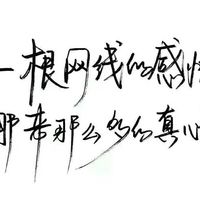 一根网线的感情
那来那么多的真心